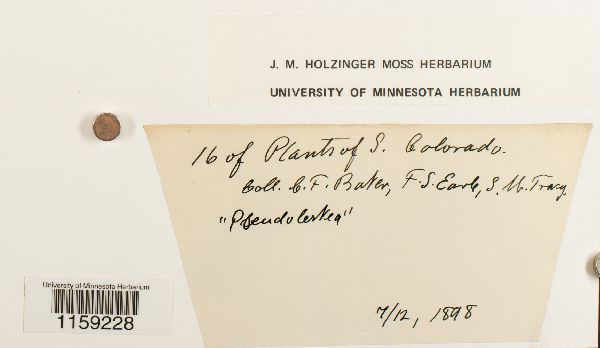 J. M. HOLZINGER MOSS HERBARIUM
UNIVERSITY OF MINNESOTA HERBARIUM
16 of Plants of S. Colorado.
Coll. C. F. Baker, F. S. Earle, S. M. Tracy.
"Pseudoleskea"
7/12, 1898
University of Minnesota Herbarium
1159228